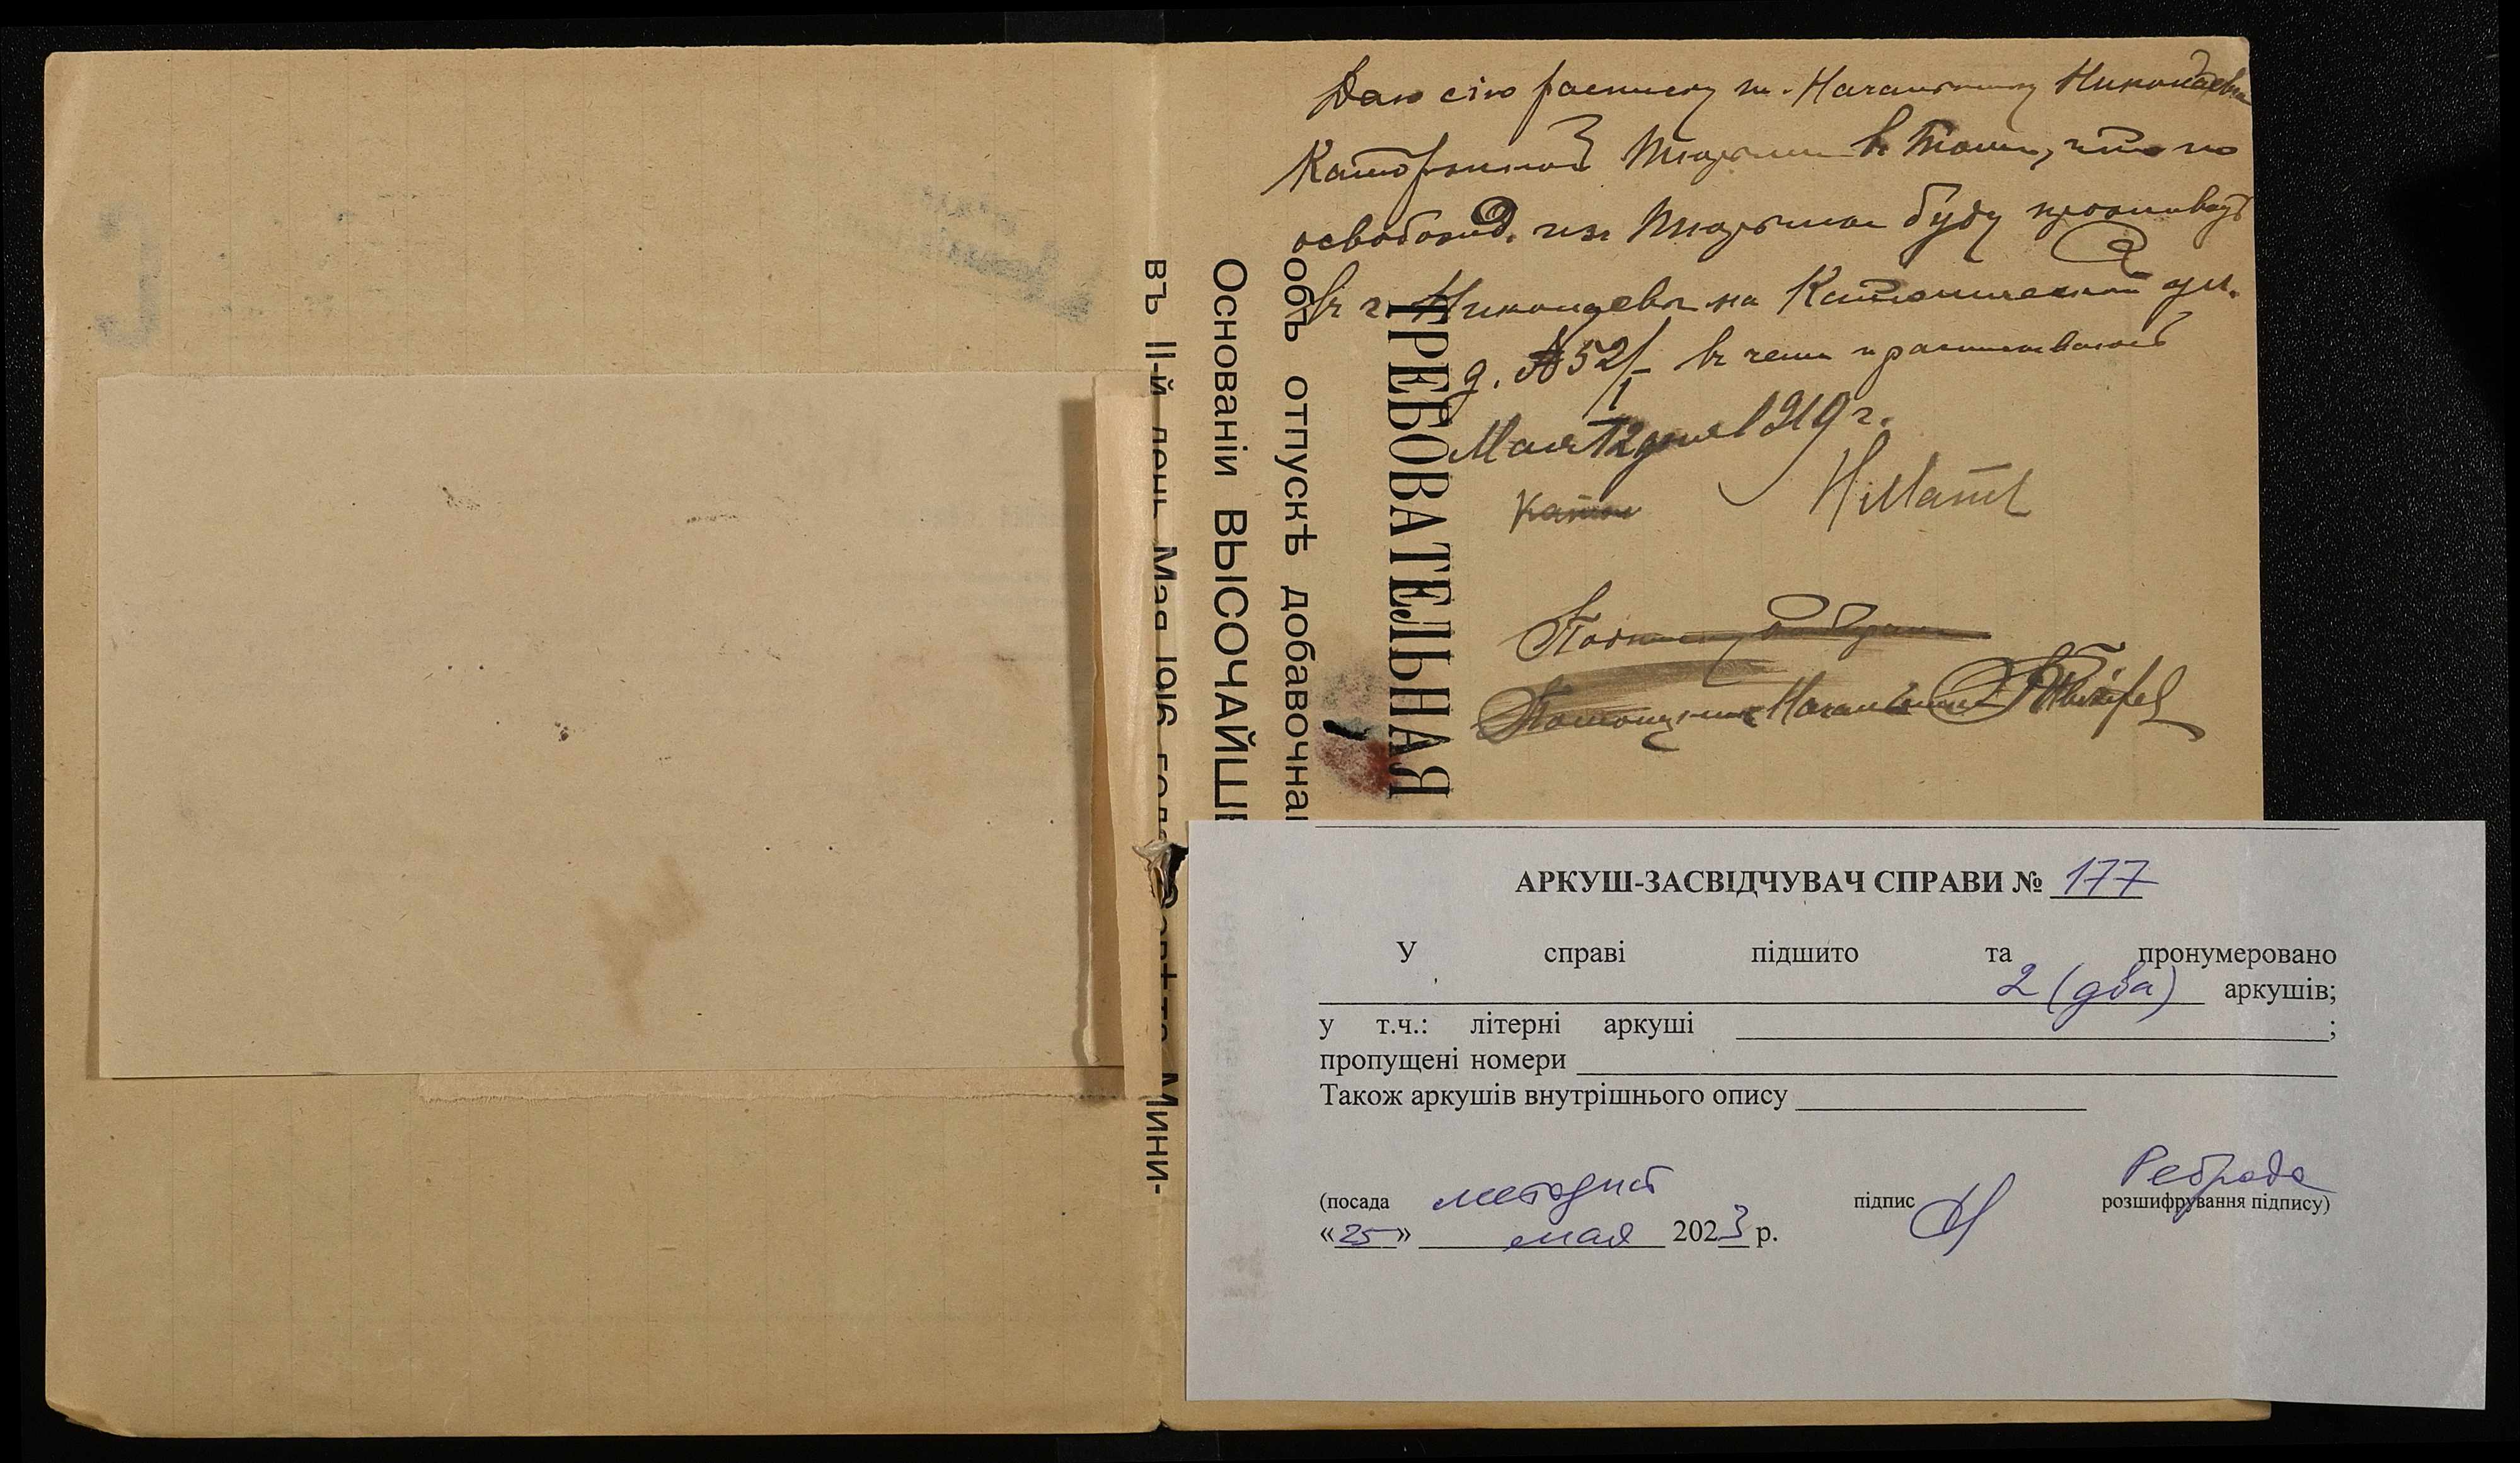 Даю сію расписку т. Начальнику Николаевск
Каторжной Тюрьми въ томъ, что по
освобожд. изъ Тюрьмы буду проживать
въ г. Николаевѣ на Католической ул.
д. №52/1 въ чемъ и расписываюсь
Мая 12 дня 1919 г.
Помощникъ Начальника
ТРЕБОВАТЕЛЬНАЯ
объ отпускѣ добавочна
Основаніи ВЫСОЧАЙШЕ
въ II-й день Мая 1916 года Совѣта Мини-
АРКУШ-ЗАСВІДЧУВАЧ СПРАВИ № 177
У справі підшито та пронумеровано
2 (два) аркушів;
у т.ч.: літерні аркуші ;
пропущені номери
Також аркушів внутрішнього опису
(посада методист підпис Реброва розшифрування підпису)
«25» мая 2023 р.